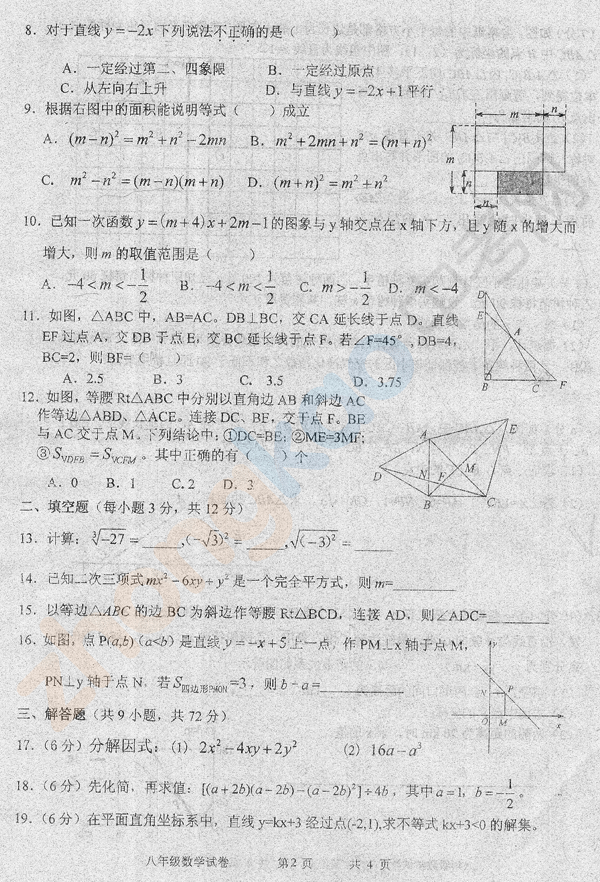 8．对于直线 y=-2x 下列说法不正确的是（　　）
A．一定经过第二、四象限　B．一定经过原点
C．从左向右上升　D．与直线 y=-2x+1 平行
9．根据右图中的面积能说明等式（　　）成立
A．(m-n)²=m²+n²-2mn　B．m²+2mn+n²=(m+n)²
C．m²-n²=(m-n)(m+n)　D．(m+n)²=m²+n²
m n
m
n
n
10．已知一次函数 y=(m+4)x+2m-1 的图象与 y 轴交点在 x 轴下方，且 y 随 x 的增大而
增大，则 m 的取值范围是（　　）
A．-4<m<-1/2　B．-4<m<1/2　C．m>-1/2　D．m<-4
11．如图，△ABC 中，AB=AC。DB⊥BC，交 CA 延长线于点 D。直线
EF 过点 A，交 DB 于点 E，交 BC 延长线于点 F。若∠F=45°，DB=4，
BC=2，则 BF=（　　）
A．2.5　B．3　C．3.5　D．3.75
D
E
A
B C F
12．如图，等腰 Rt△ABC 中分别以直角边 AB 和斜边 AC
作等边△ABD、△ACE。连接 DC、BF，交于点 F。BE
与 AC 交于点 M。下列结论中：①DC=BE；②ME=3MF；
③S▽DFB=S▽CFM。其中正确的有（　　）个
A．0　B．1　C．2　D．3
E
A
D N F M
B C
二、填空题（每小题 3 分，共 12 分）
13．计算：∛-27=_____,(-√3)²=_____,√(-3)²=_____
14．已知二次三项式 mx²-6xy+y² 是一个完全平方式，则 m=________
15．以等边△ABC 的边 BC 为斜边作等腰 Rt△BCD，连接 AD，则∠ADC=________
16．如图，点 P(a,b)（a<b）是直线 y=-x+5 上一点，作 PM⊥x 轴于点 M，
PN⊥y 轴于点 N，若 S四边形PMON=3，则 b-a=________
y
N P
O M x
三、解答题（共 9 小题，共 72 分）
17．（6 分）分解因式：(1) 2x²-4xy+2y²　(2) 16a-a³
18．（6 分）先化简，再求值：[(a+2b)(a-2b)-(a-2b)²]÷4b，其中 a=1，b=-1/2。
19．（6 分）在平面直角坐标系中，直线 y=kx+3 经过点(-2,1),求不等式 kx+3<0 的解集。
八年级数学试卷　第 2 页　共 4 页